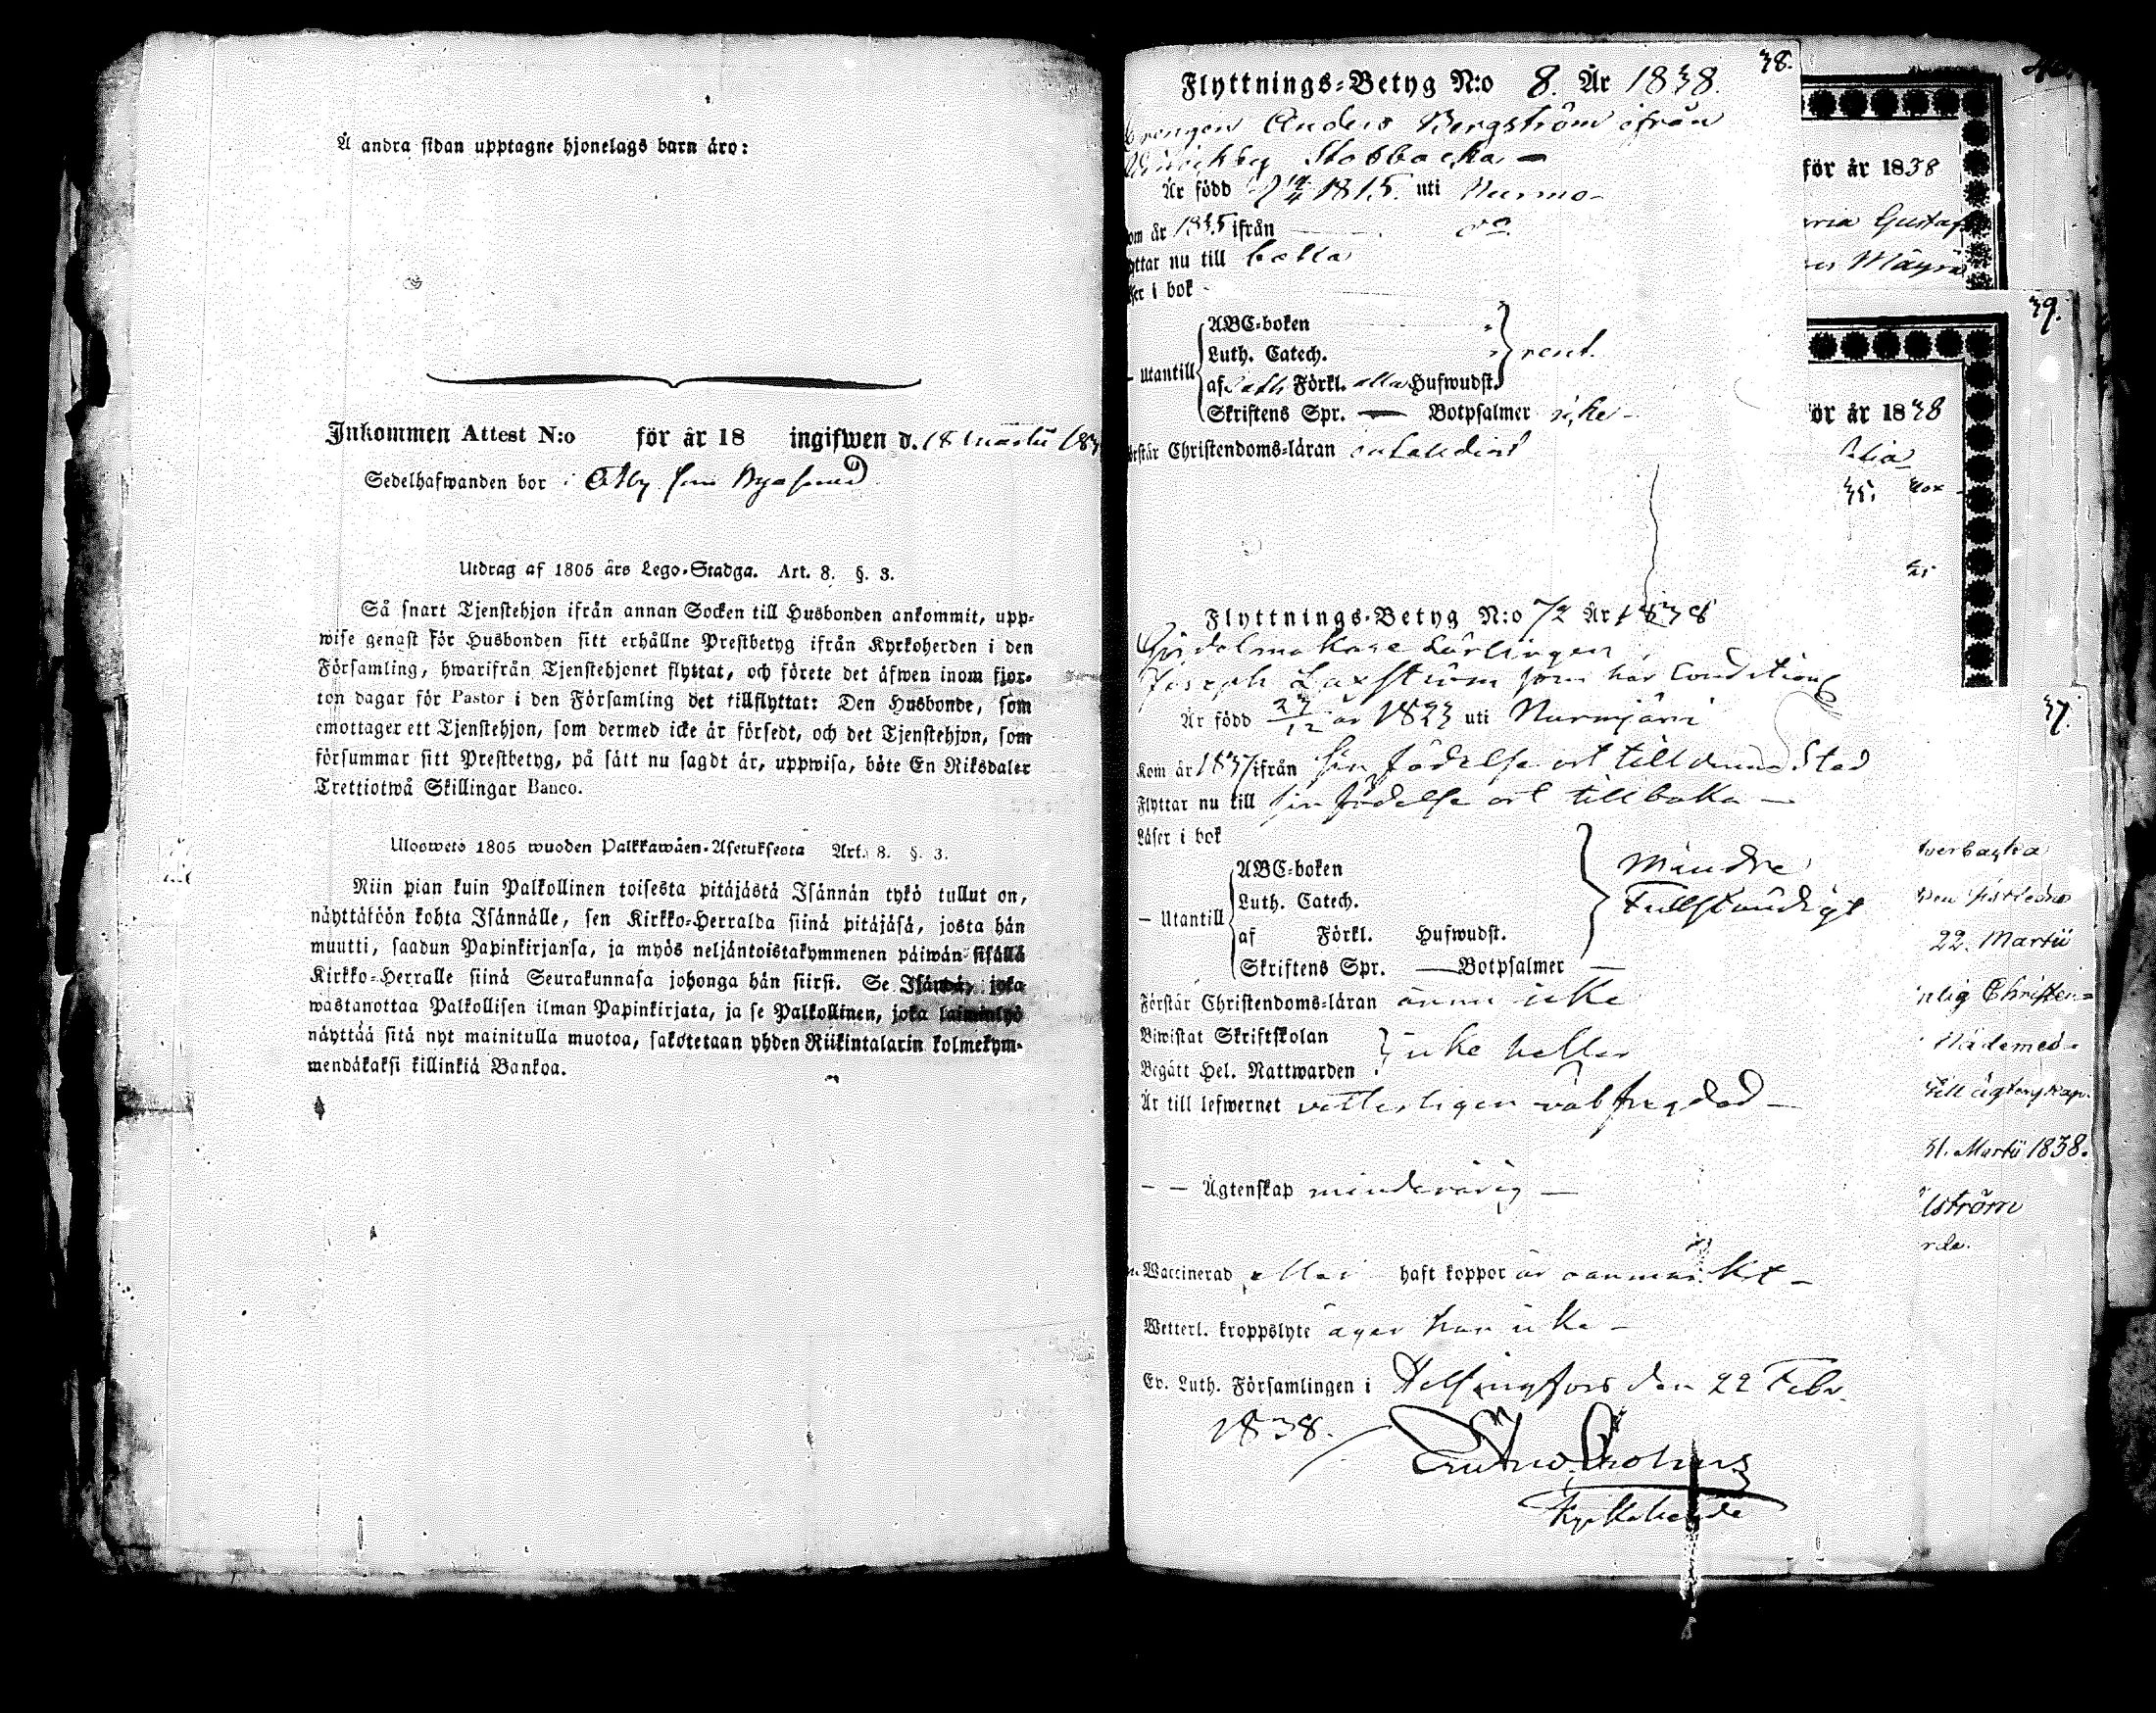 Å andra sidan upptagne hjonelags barn äro:
Inkommen Attest N:o för år 18 ingifwen d. 18 Martii 183
Sedelhafwanden bor i
Utdrag af 1805 års Lego-Stadga. Art. 8. §. 3.
Så snart Tjenstehjon ifrån annan Socken till Husbonden ankommit, upp-
wise genast för Husbonden sitt erhållne Prestbetyg ifrån Kyrkoherden i den
Församling, hwarifrån Tjenstehjonet flyttat, och förete det äfwen inom fjor-
ton dagar för Pastor i den Församling det tillflyttat: Den Husbonde, som
emottager ett Tjenstehjon, som dermed icke är försedt, och det Tjenstehjon, som
försummar sitt Prestbetyg, på sätt nu sagdt är, uppwisa, böte En Riksdaler
Trettiotwå Skillingar Banco.
Uloswets 1805 wuoden Palkkawäen-Asetuksesta Art. 8. §. 3.
Niin pian kuin Palkollinen toisesta pitäjästä Isännän tykö tullut on,
näyttäköön kohta Isännälle, sen Kirkko-Herralda siinä pitäjäsä, josta hän
muutti, saadun Papinkirjansa, ja myös neljäntoistakymmenen päiwän sisällä
Kirkko-Herralle siinä Seurakunnasa johonga hän siirsi. Se Isändä, joka
wastanottaa Palkollisen ilman Papinkirjata, ja se Palkollinen, joka laiminlyö
näyttää sitä nyt mainitulla muotoa, sakotetaan yhden Riikintalarin kolmekym-
mendäkaksi killinkiä Bankoa.
38.
Flyttnings-Betyg N:o 8. År 1838.
Drengen Anders Bergström ifrån
Stobbacka
Är född 1815. uti Nurmo
om år 1835 ifrån do
yttar nu till
ser i bok
ABC-boken
Luth. Catech. rent.
— Utantill
af Förkl. alla Hufwudst.
Skriftens Spr. — Botpsalmer icke
örstår Christendoms-läran
Flyttnings-Betyg N:o 72 År 1838
Gördelmakare Lärlingen
Joseph Laxström som här Condition
Är född 27/12 år 1823 uti Nurmijärvi
Kom år 1837 ifrån sin födelse ort till denna Stad
Flyttar nu till sin födelse ort tillbaka
Läser i bok
ABC-boken Mindre
Luth. Catech. Fullständigt
— Utantill
af Förkl. Hufwudst.
Skriftens Spr. — Botpsalmer —
Förstår Christendoms-läran ännu icke
Biwistat Skriftskolan
icke heller
Begått Hel. Nattwarden
Är till lefwernet vetterligen välfrägdad
— — Ägtenskap minderårig —
Waccinerad eller haft koppor är oanmärkt
Wetterl. kroppslyte äger han icke
Ev. Luth. Församlingen i Helsingfors den 22 Febr.
1838.
Kyrkoherde
för år 1838
ria Gustaf
39.
ör år 1838
37.
22. Martii
nlig Christen-
Nådemed-
till ägtenskap
31. Martii 1838.
lström